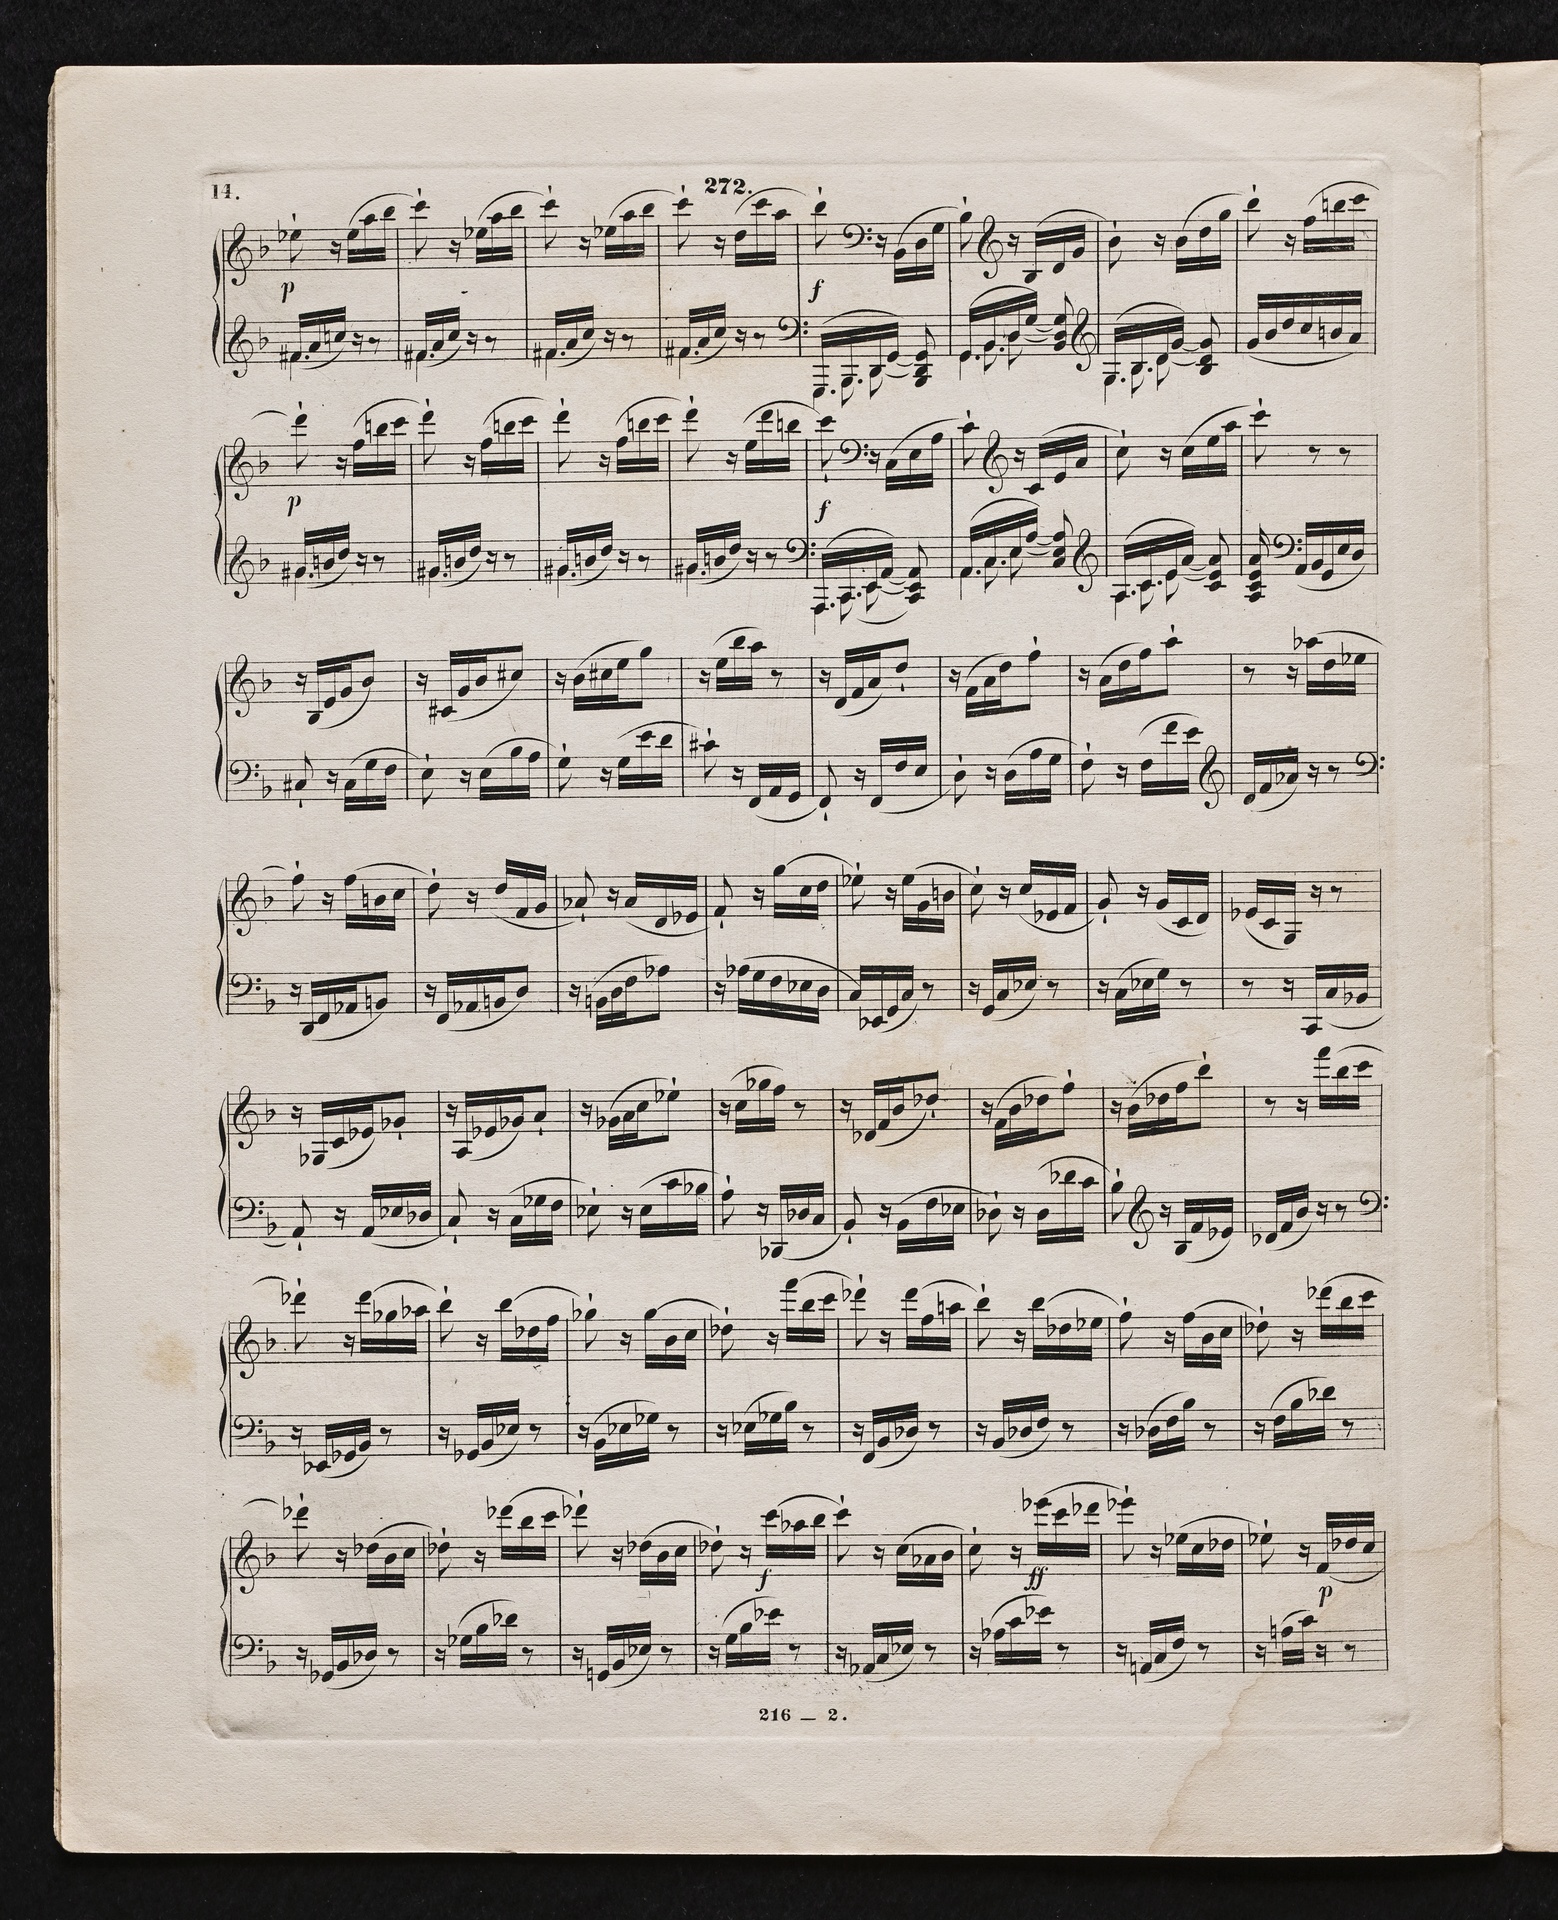 14.
272.
p
f
p
f
f
ff
p
216 — 2.